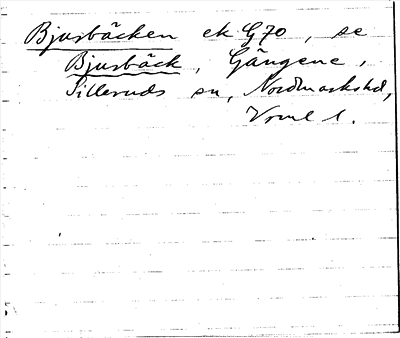 Bjursbäcken ek G70, se
Bjurbäck, Gängene,
Silleruds sn, Nordmarkshd,
Vrml l.